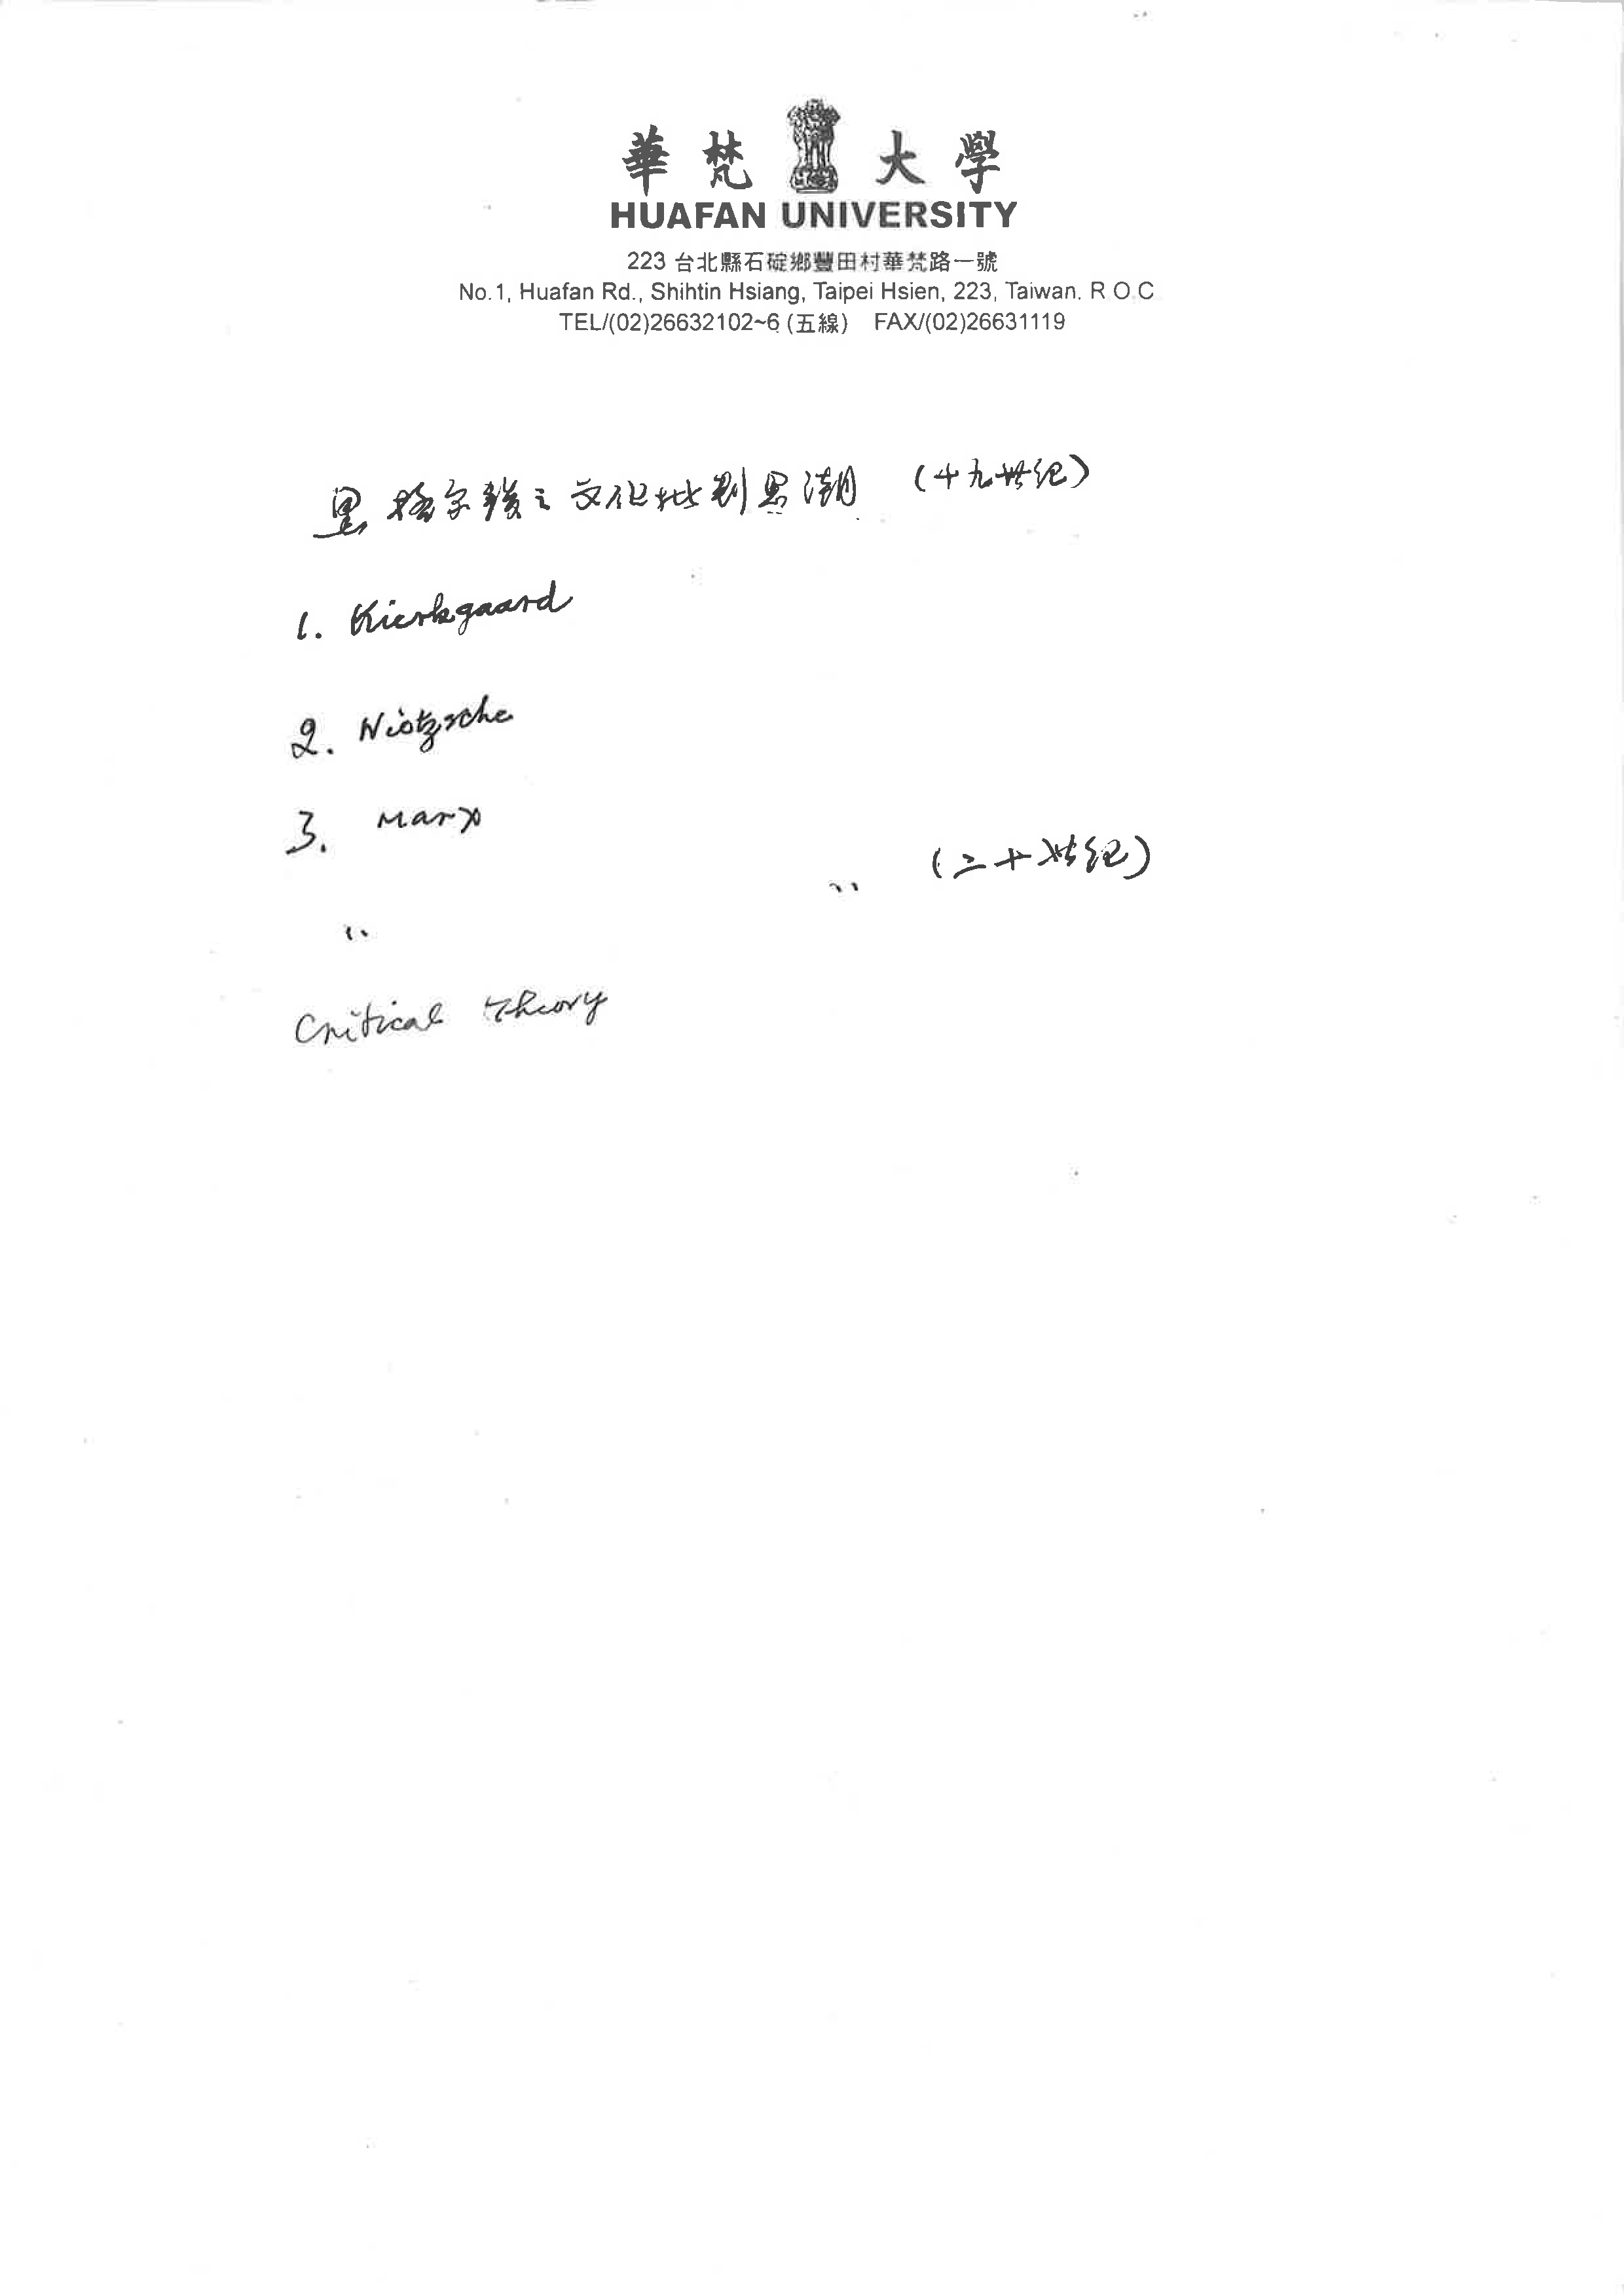 華梵大學
HUAFAN UNIVERSITY
223 台北縣石碇鄉豐田村華梵路一號
No.1, Huafan Rd., Shihtin Hsiang, Taipei Hsien, 223, Taiwan. R O C
TEL/(02)26632102~6 (五線) FAX/(02)26631119
黑格尔後之文化批判思潮 (十九世纪)
1. Kierkgaard
2. Nietzsche
3. Marx
〃 〃 (二十世纪)
Critical Theory